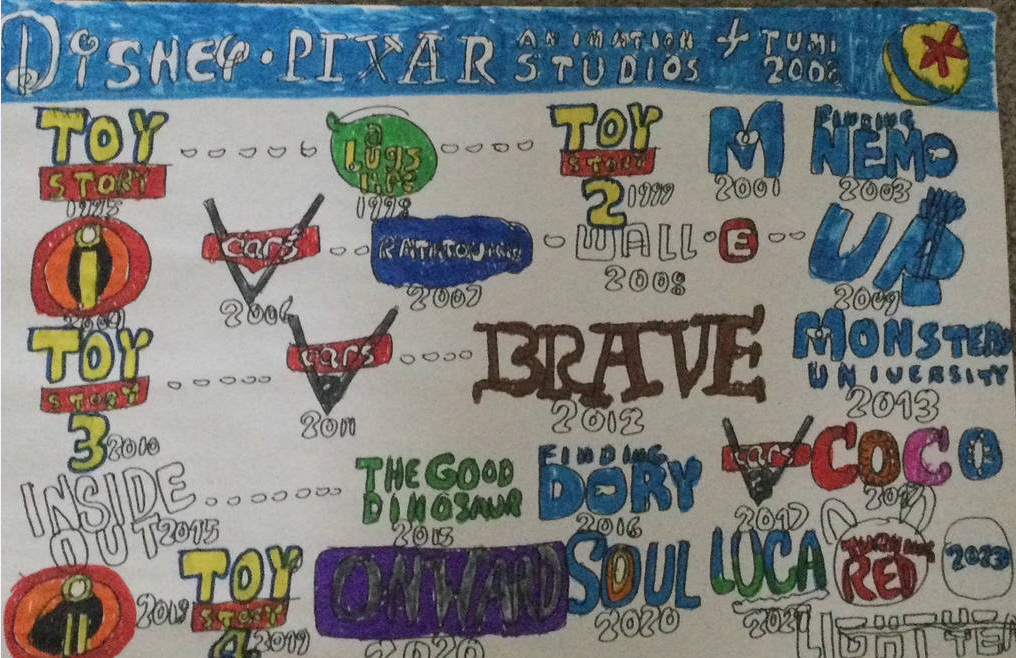 DISNEY·PIXAR ANIMATION STUDIOS + TUMI 2008
TOY STORY 1995
a bugs life 1998
TOY STORY 2 1999
M 2001
FINDING NEMO 2003
i 2004
cars 2006
RATATOUILLE 2007
WALL·E 2008
UP 2009
TOY STORY 3 2010
cars 2 2011
BRAVE 2012
MONSTERS UNIVERSITY 2013
INSIDE OUT 2015
THE GOOD DINOSAUR 2015
FINDING DORY 2016
cars 3 2017
COCO 2017
II 2018
TOY STORY 4 2019
ONWARD 2020
SOUL 2020
LUCA 2021
TURNING RED
2023
LIGHTYEA